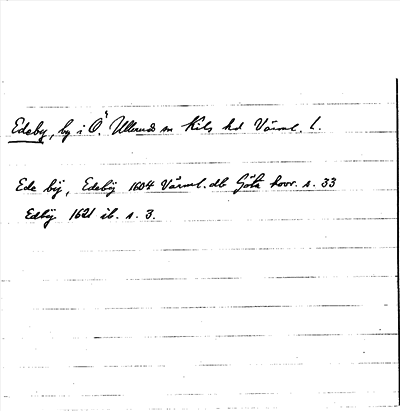 Edeby, by i Ö. Ullerud sn Kils hd Värml. l.
Ede bÿ, Edebÿ 1604 Värml. db Göta hovr. s. 33
Edbÿ 1621 ib. s. 3.